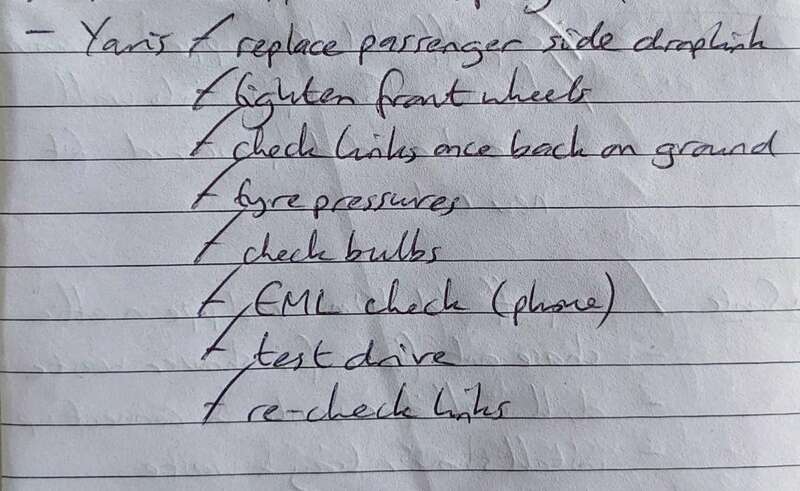 - Yaris / replace passenger side droplink
/ tighten front wheels
/ check links once back on ground
/ tyre pressures
/ check bulbs
/ EML check (phone)
/ test drive
/ re-check links